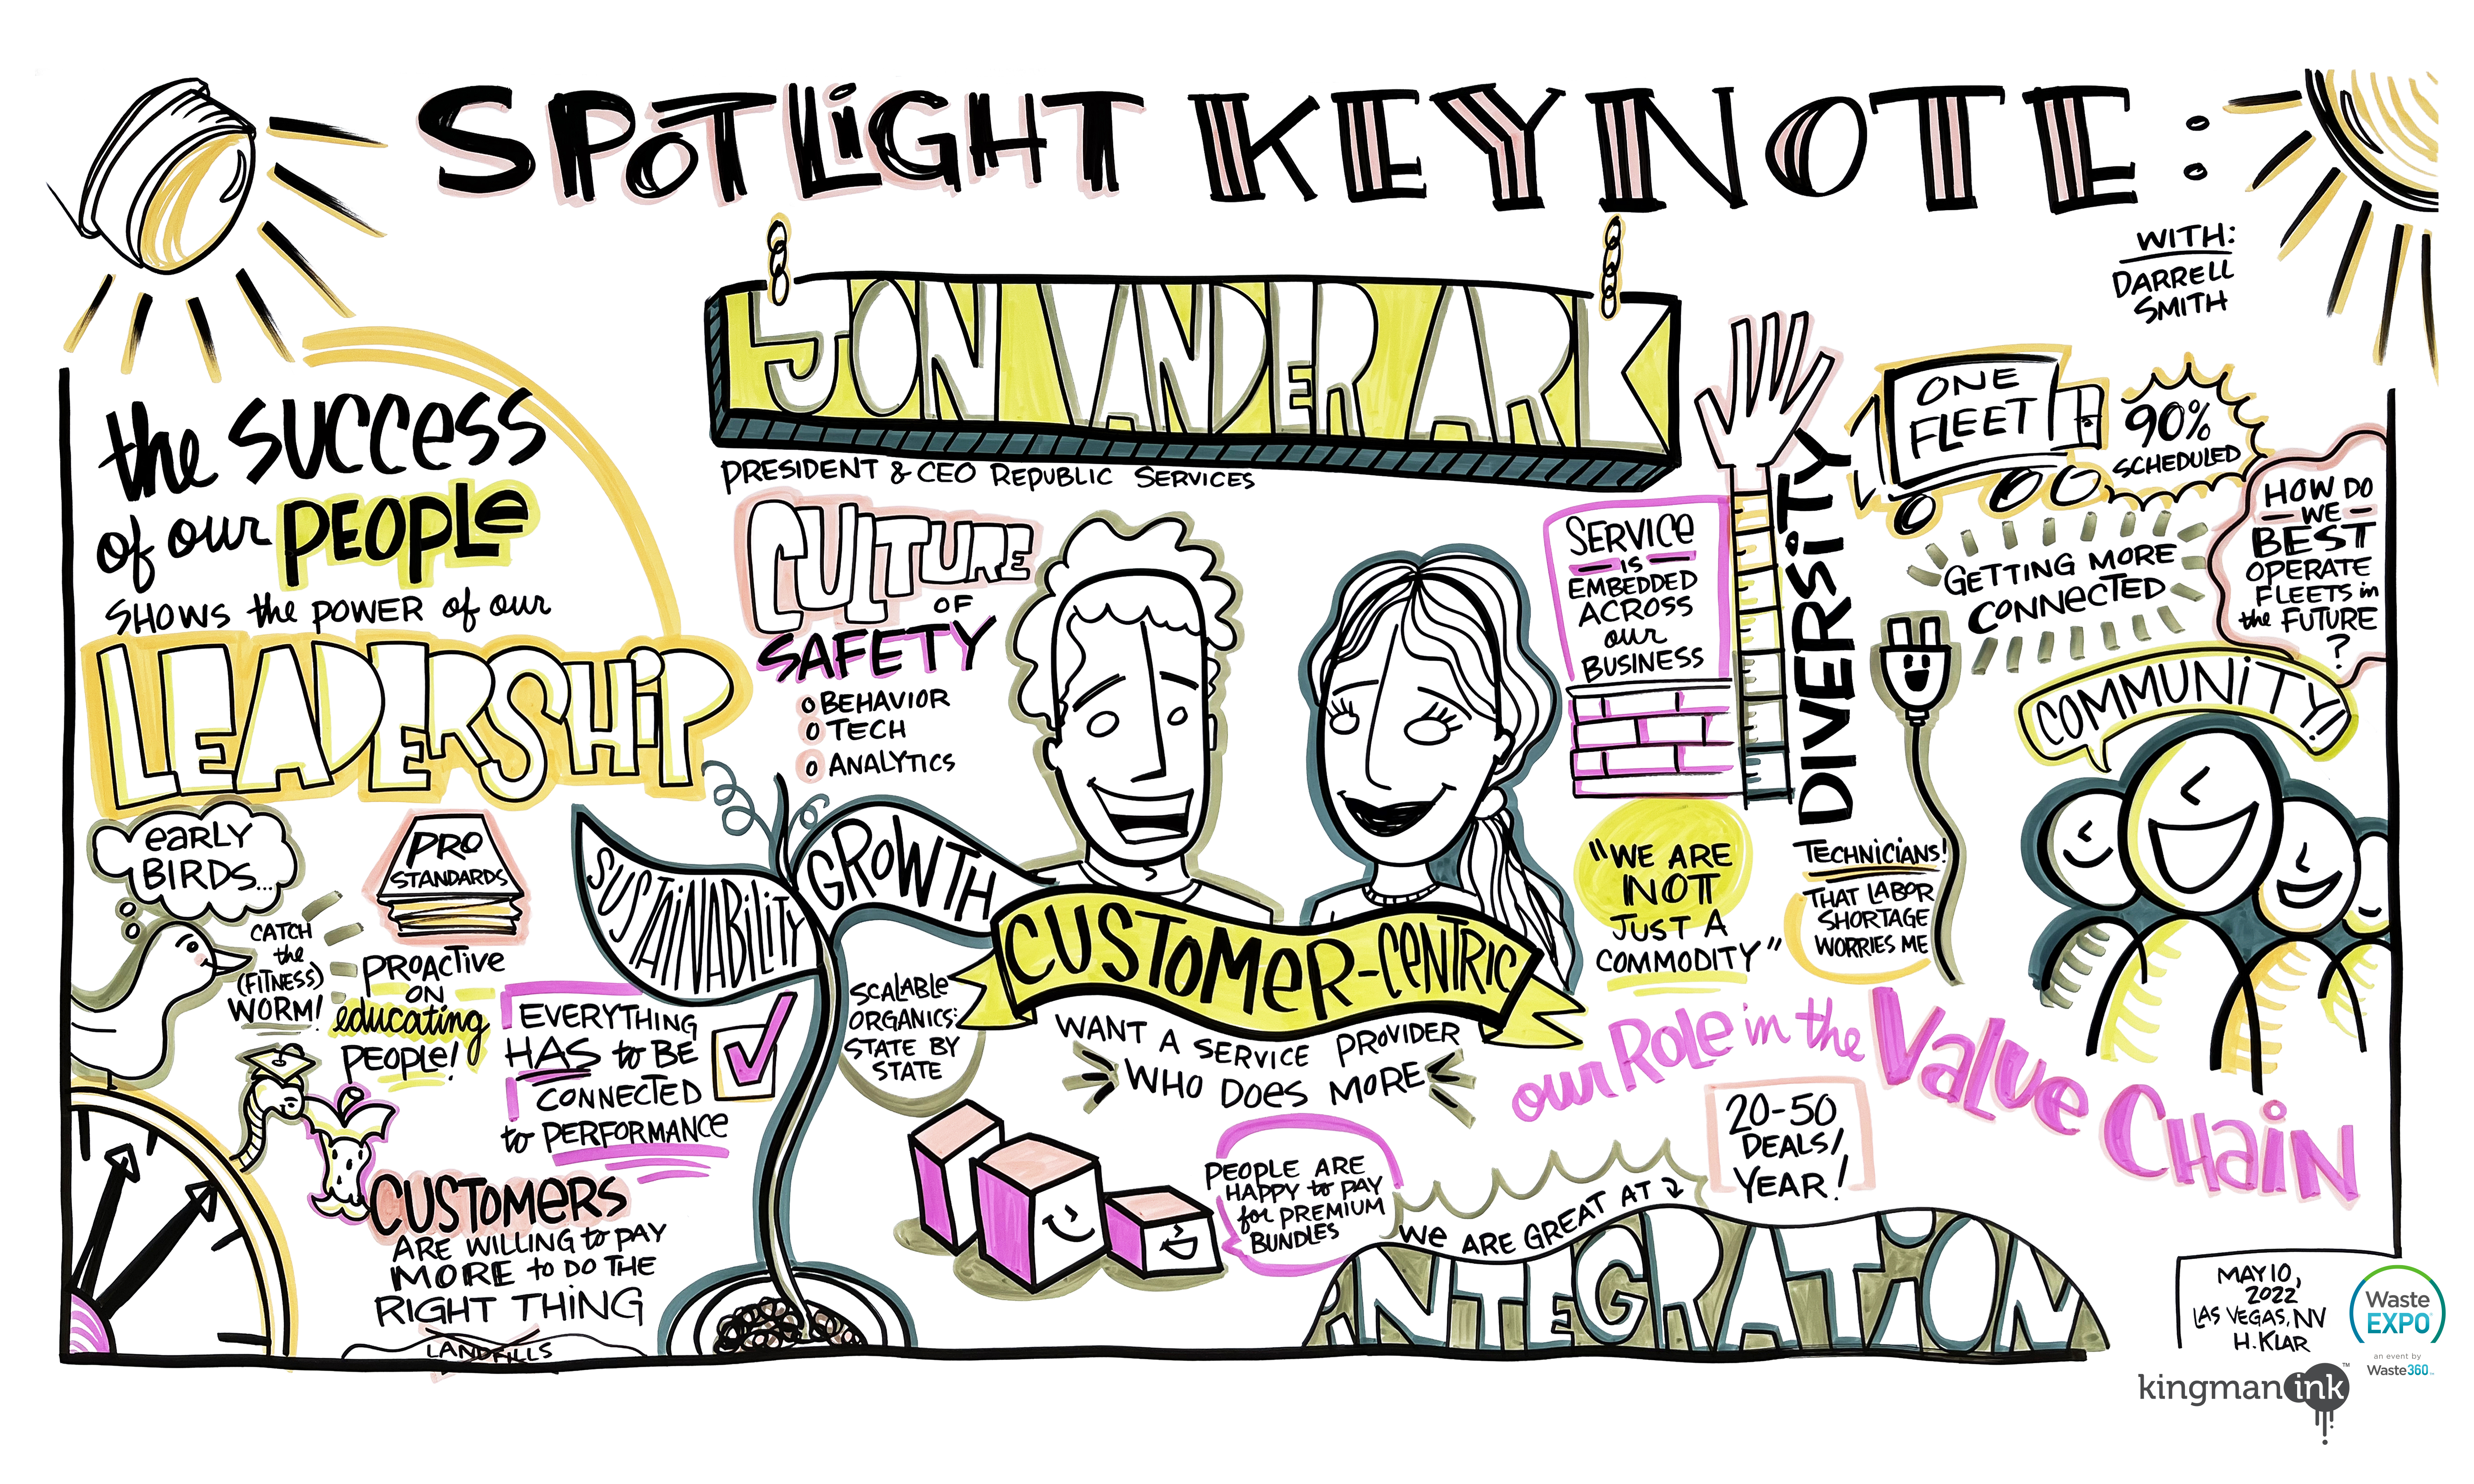 SPOTLiGHT KEYNOTE:
WITH:
DARRELL
SMITH
JON VANDER ARK
PRESIDENT & CEO REPUBLIC SERVICES
the SUCCESS
of our PEOPLE
SHOWS the POWER of our
LEADERSHiP
EARLY
BIRDS...
CATCH
the
(FITNESS)
WORM!
PRO
STANDARDS
PROACTIVE
ON
educating
PEOPLE!
EVERYTHING
HAS to BE
CONNECTED
to PERFORMANCE
CUSTOMERS
ARE WILLING to PAY
MORE to DO THE
RIGHT THING
LANDFILLS
CULTURE
OF
SAFETY
BEHAVIOR
TECH
ANALYTICS
SUSTAINABILITY
GROWTH
SCALABLE
ORGANICS:
STATE BY
STATE
CUSTOMER-CENTRIC
WANT A SERVICE PROVIDER
WHO DOES MORE
PEOPLE ARE
HAPPY to PAY
for PREMIUM
BUNDLES
SERVICE
IS
EMBEDDED
ACROSS
our
BUSINESS
DIVERSITY
"WE ARE
NOT
JUST A
COMMODITY"
ONE
FLEET
90%
SCHEDULED
GETTING MORE
CONNECTED
HOW DO
WE
BEST
OPERATE
FLEETS in
the FUTURE
?
COMMUNITY!!
TECHNICIANS!
THAT LABOR
SHORTAGE
WORRIES ME
our Role in the Value Chain
20-50
DEALS/
YEAR!
We ARE GREAT AT
iNTEGRATiON
MAY 10,
2022
LAS VEGAS, NV
H. KLAR
Waste
EXPO
an event by
Waste360
kingman ink ™